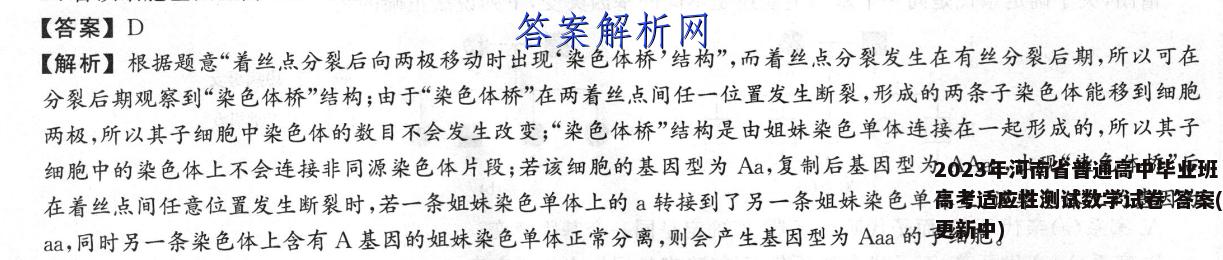 【答案】D
答案解析网
【解析】根据题意“着丝点分裂后向两极移动时出现‘染色体桥’结构”,而着丝点分裂发生在有丝分裂后期,所以可在
分裂后期观察到“染色体桥”结构;由于“染色体桥”在两着丝点间任一位置发生断裂,形成的两条子染色体能移到细胞
两极,所以其子细胞中染色体的数目不会发生改变;“染色体桥”结构是由姐妹染色单体连接在一起形成的,所以其子
细胞中的染色体上不会连接非同源染色体片段;若该细胞的基因型为 Aa,复制后基因型为
在着丝点间任意位置发生断裂时,若一条姐妹染色单体上的 a 转接到了另一条姐妹染色单
aa,同时另一条染色体上含有 A 基因的姐妹染色单体正常分离,则会产生基因型为 Aaa 的子细胞。
2023年河南省普通高中毕业班
高考适应性测试数学试卷 答案(
更新中)